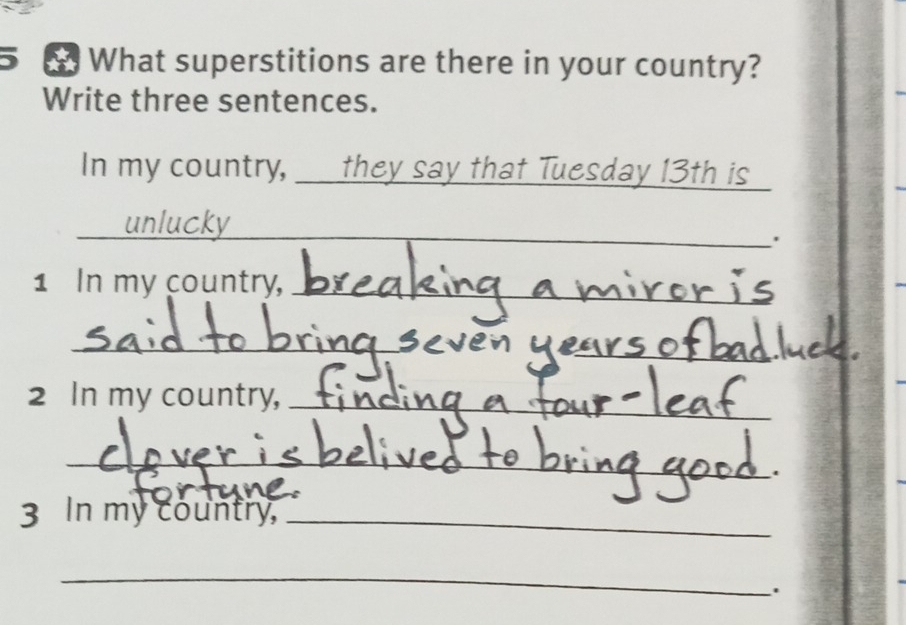 5 What superstitions are there in your country?
Write three sentences.
In my country, they say that Tuesday 13th is
unlucky .
1 In my country, breaking a miror is
said to bring seven years of bad.luck.
2 In my country, finding a four-leaf
clover is belived to bring good.
fortune.
3 In my country,
.